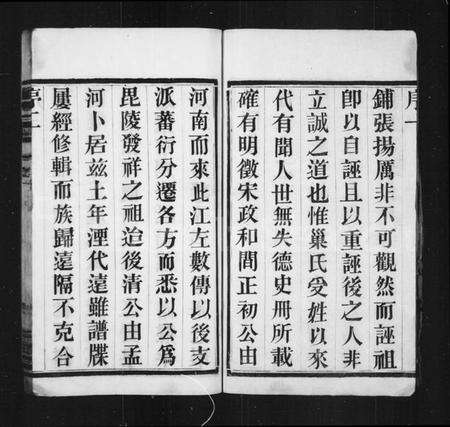 序一
鋪張揚厲非不可觀然而誣祖
卽以自誣且以重誣後之人非
立誠之道也惟巢氏受姓以來
代有聞人世無失德史冊所載
確有明徵宋政和間正初公由
河南而來此江左數傳以後支
派蕃衍分遷各方而悉以公爲
毘陵發祥之祖迨後清公由孟
河卜居玆土年湮代遠雖譜牒
屢經修輯而族歸遠隔不克合
序二